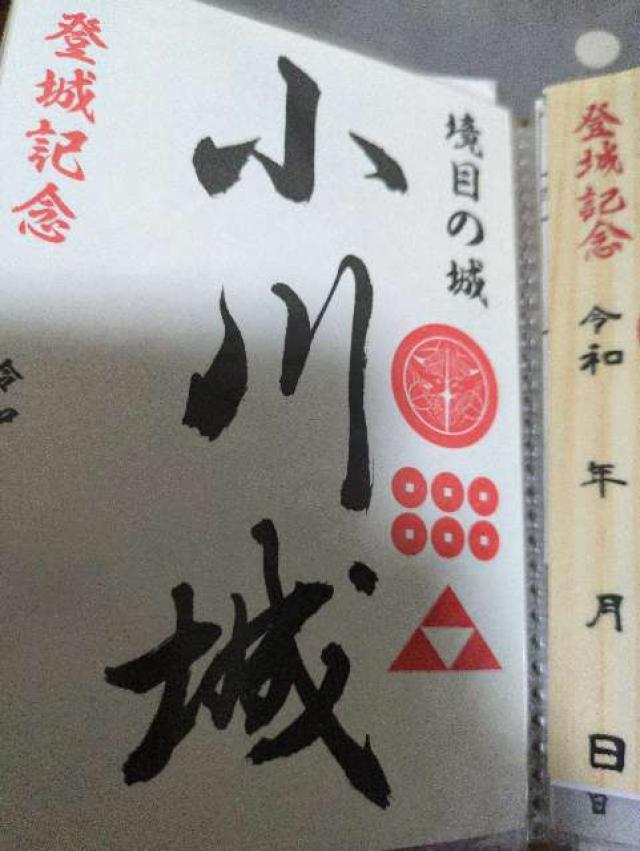 登城記念
令和
年
月
日
日
境目の城
小川城
登城記念
令和